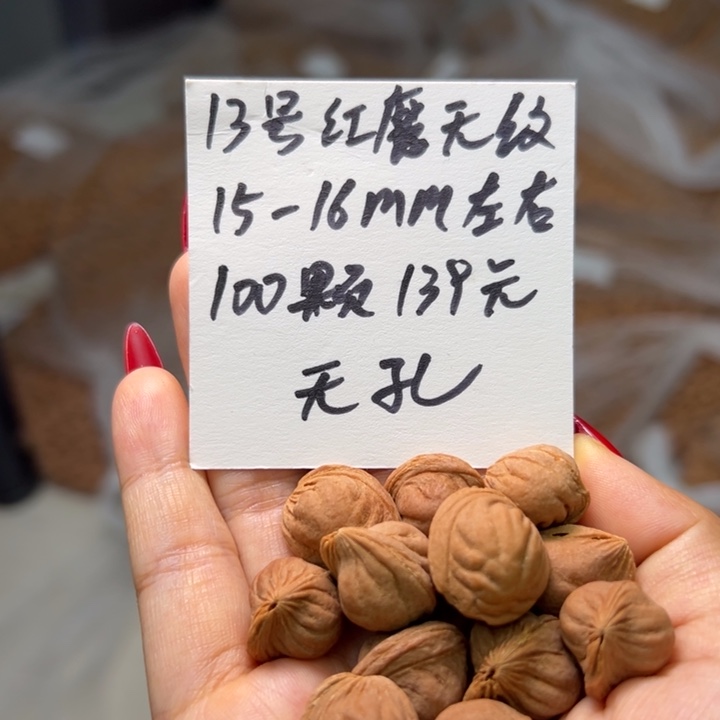 13号红磨无纹
15-16mm左右
100颗 139元
无孔